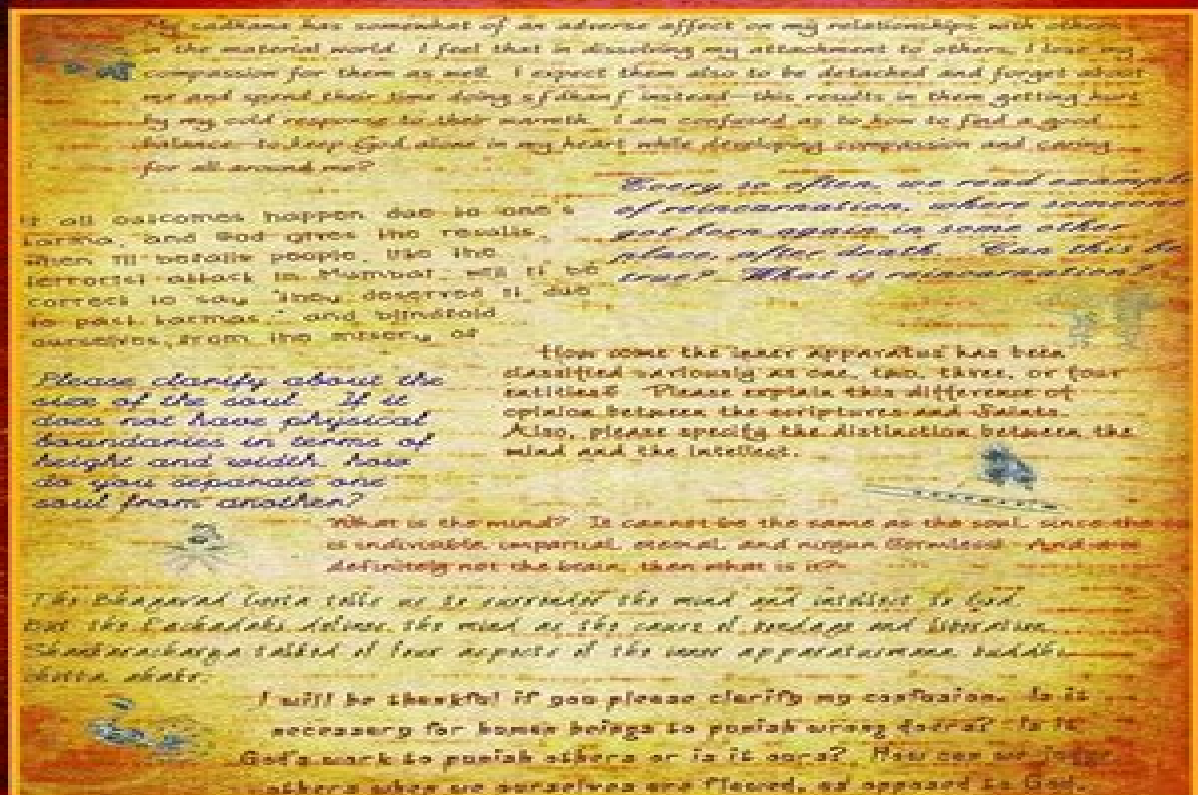 My sadhana has somewhat of an adverse affect on my relationships with others
in the material world. I feel that in dissolving my attachment to others, I lose my
compassion for them as well. I expect them also to be detached and forget about
me and spend their time doing sfdhanf instead - this results in them getting hurt
by my cold response to their warmth. I am confused as to how to find a good
balance - to keep God alone in my heart while developing compassion and caring
for all around me?
Every so often, we read example
of reincarnation, where someone
got born again in some other
place, after death. Can this be
true? What is reincarnation?
If all outcomes happen due to one's
karma, and God gives the results,
when ill befalls people, like the
terrorist attack in Mumbai, will it be
correct to say "they deserved it due
to past karmas," and blindfold
ourselves from the misery of
How come the inner apparatus has been
classified variously as one, two, three, or four
entities? Please explain this difference of
opinion between the scriptures and Saints.
Also, please specify the distinction between the
mind and the intellect.
Please clarify about the
size of the soul. If it
does not have physical
boundaries in terms of
height and width, how
do you separate one
soul from another?
What is the mind? It cannot be the same as the soul, since the
is indivisible, impartial, eternal, and nirgun (formless). And
definitely not the brain, then what is it?
The Bhagavad Geeta tells us to surrender the mind and intellect to God.
But the Panchadashi defines the mind as the cause of bondage and liberation.
Shankaracharya talked of four aspects of the inner apparatus: mana, buddhi,
chitta, ahankar.
I will be thankful if you please clarify my confusion. Is it
necessary for human beings to punish wrong doers? Is it
God's work to punish others or is it ours? How can we judge
others when we ourselves are flawed, as opposed to God.